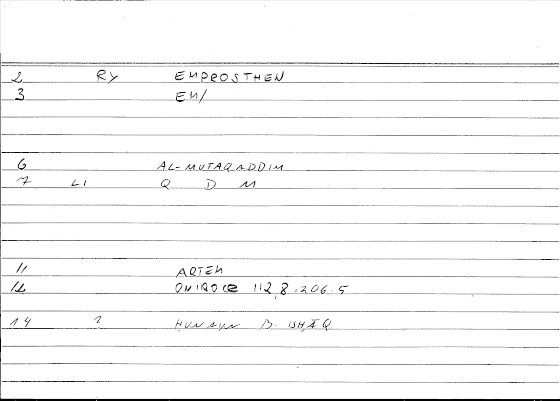 2 RY EMPROSTHEN
3 EM/
6 AL-MUTAQADDIM
7 LI Q D M
11 ARTEM
12 ONIROCR 112,8 = 206.5
14 2 HUNAYN B. ISHĀQ